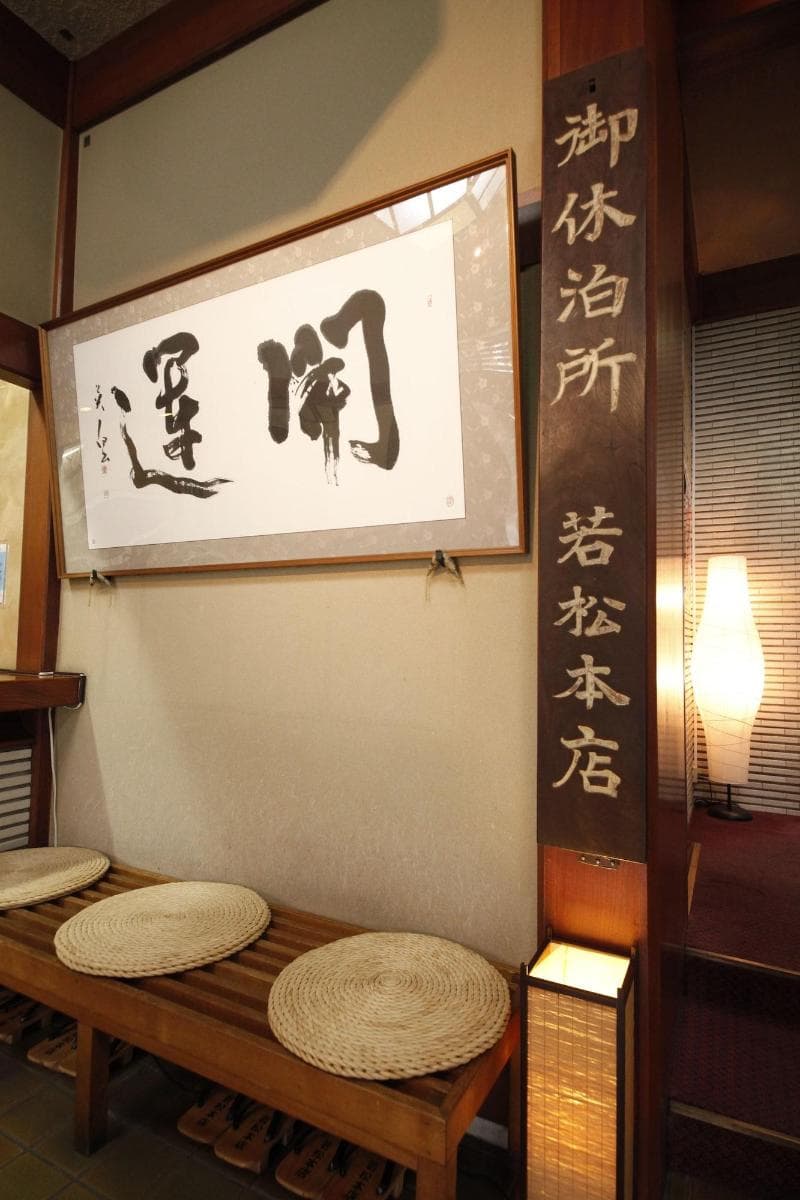 開運
御休泊所 若松本店